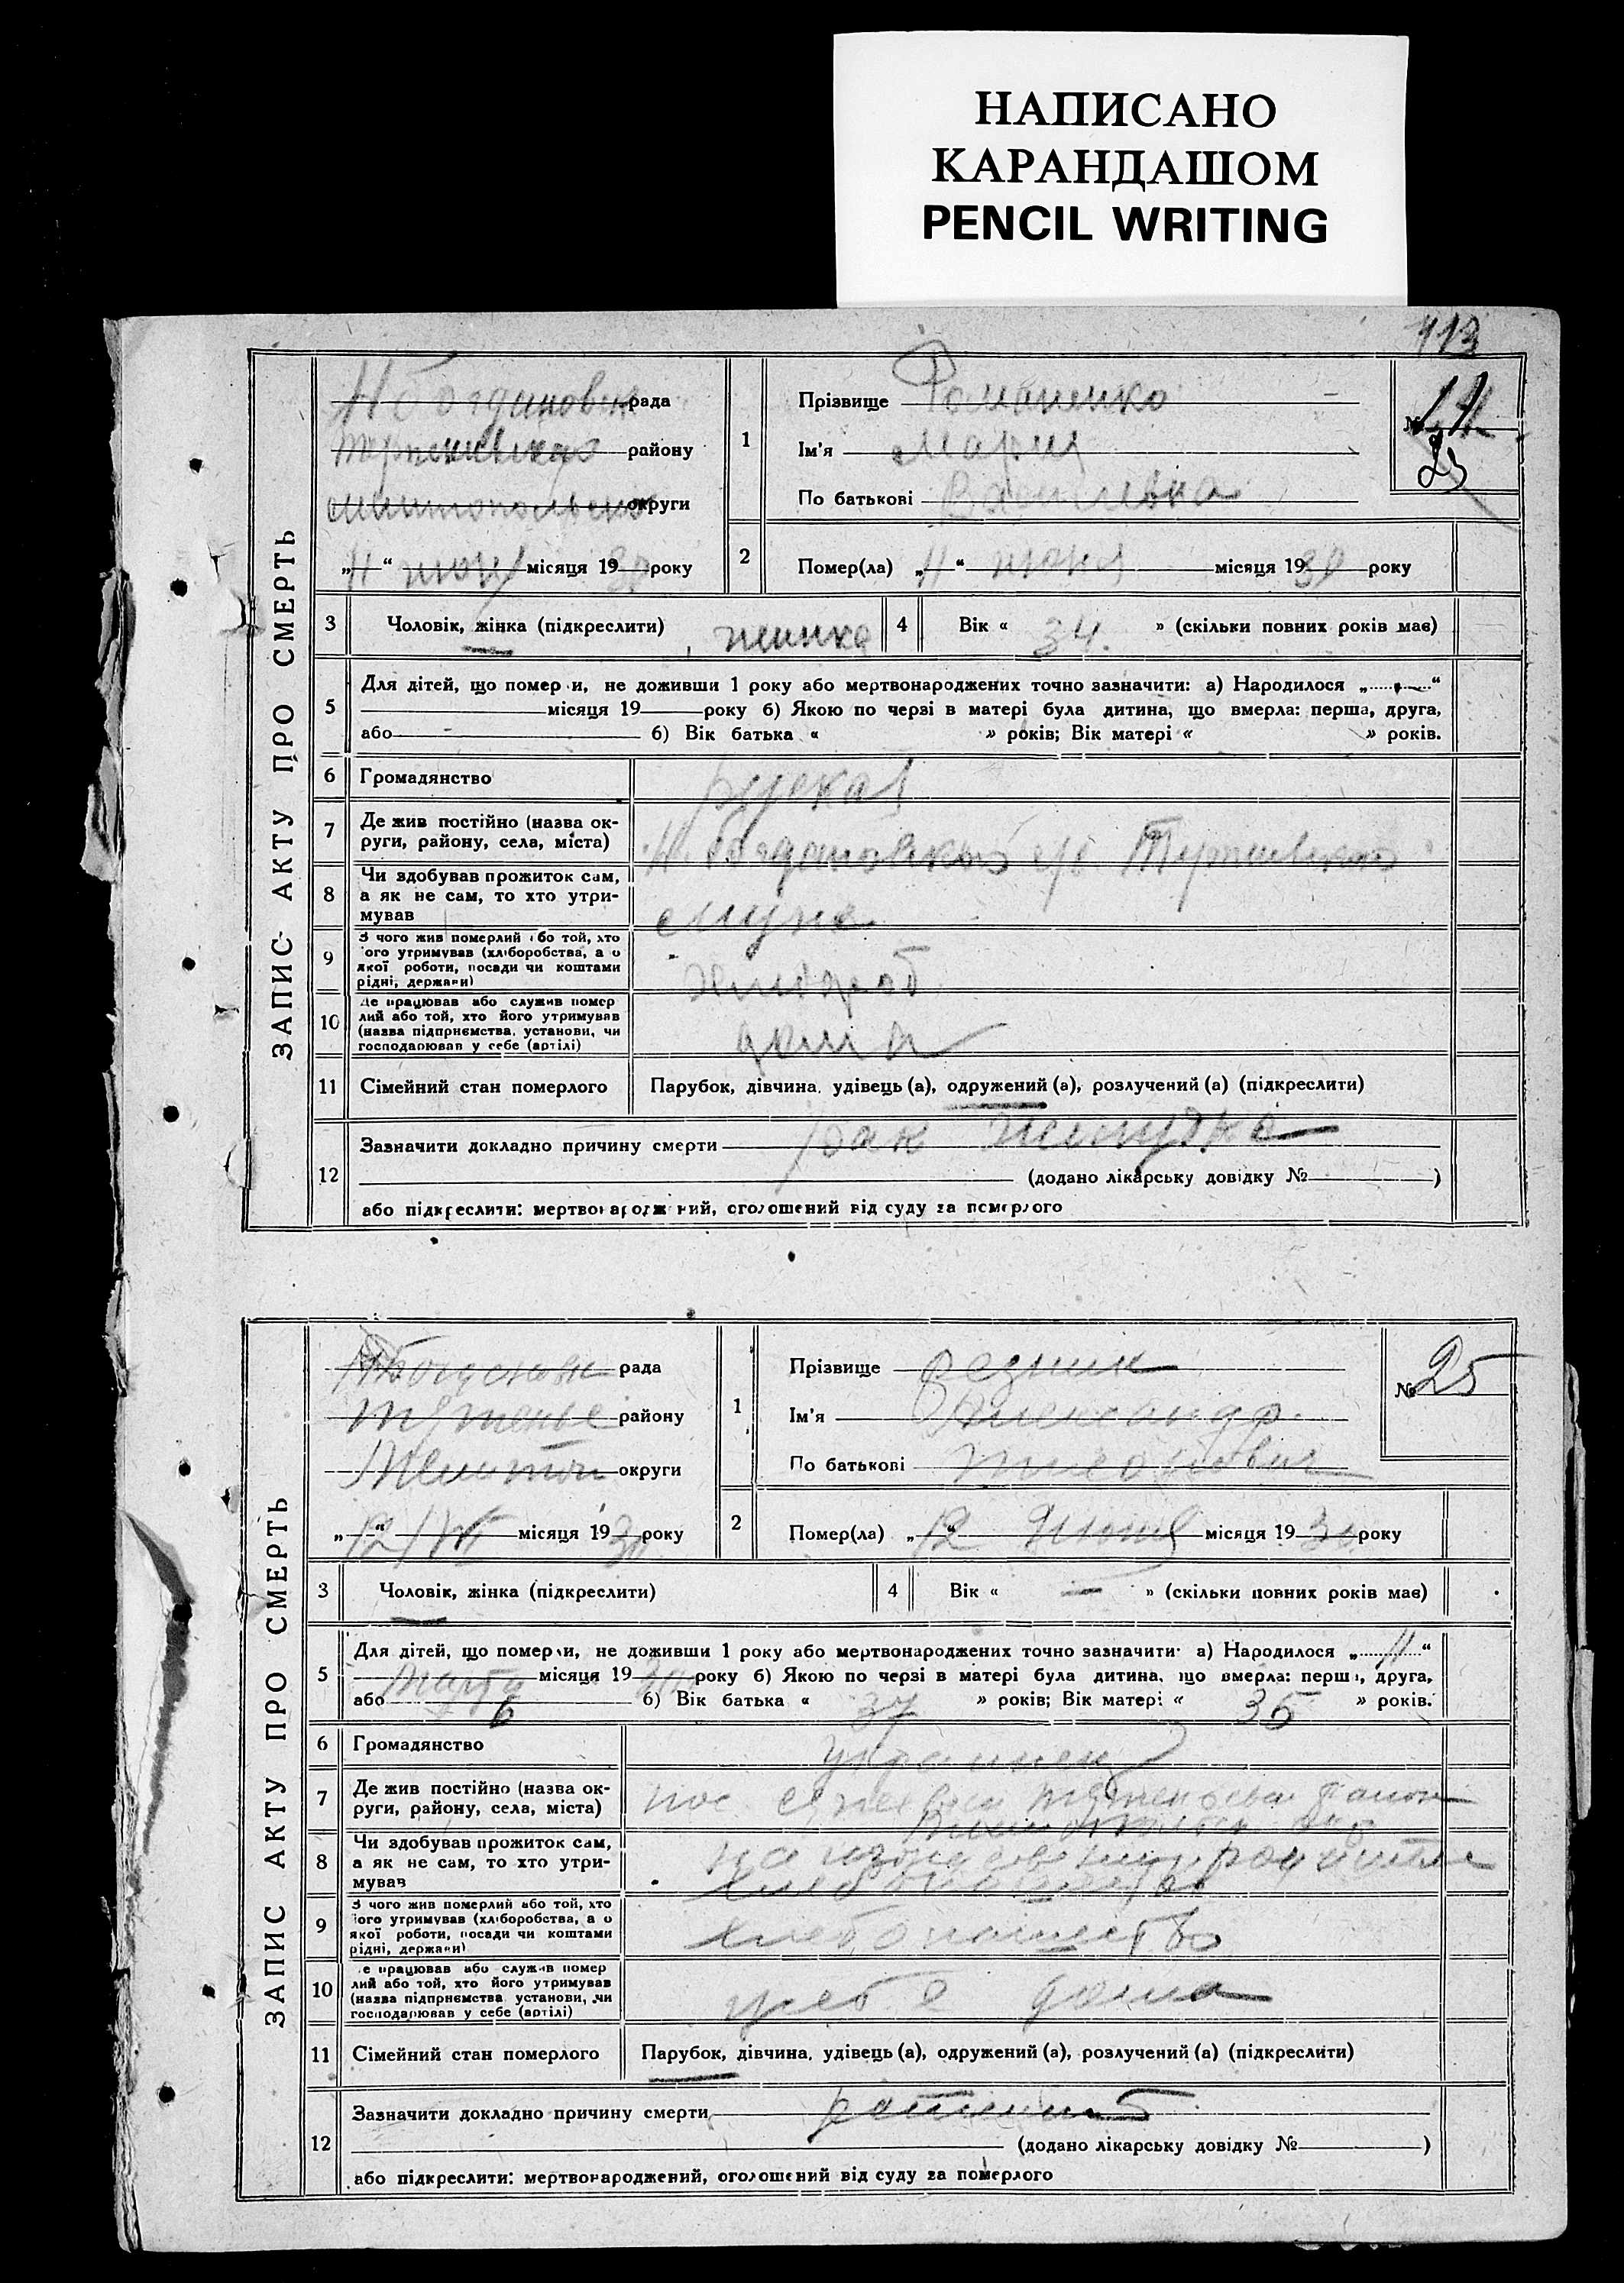 НАПИСАНО
КАРАНДАШОМ
PENCIL WRITING
413
ЗАПИС АКТУ ПРО СМЕРТЬ
рада
району
округи
„11“ місяця 1930 року
1
Прізвище Романенко
Ім'я Мария
По батькові
№
23
2
Помер(ла) „11“ июня місяця 1930 року
3
Чоловік, жінка (підкреслити)
4
Вік « 34. » (скільки повних років має)
5
Для дітей, що померли, не доживши 1 року або мертвонароджених точно зазначити: а) Народилося „ “
місяця 19 року б) Якою по черзі в матері була дитина, що вмерла: перша, друга,
або б) Вік батька « » років; Вік матері « » років.
6
Громадянство
руская
7
Де жив постійно (назва ок-
руги, району, села, міста)
8
Чи здобував прожиток сам,
а як не сам, то хто утри-
мував
9
З чого жив померлий або той, хто
його утримував (хліборобства, а о
якої роботи, посади чи коштами
рідні, держави)
10
Де працював або служив помер
лий або той, хто його утримував
(назва підприємства, установи, чи
господарював у себе (артілі)
дома
11
Сімейний стан померлого
Парубок, дівчина, удівець (а), одружений (а), розлучений (а) (підкреслити)
12
Зазначити докладно причину смерти рак желудка
(додано лікарську довідку № )
або підкреслити: мертвонароджений, оголошений від суду за померлого
ЗАПИС АКТУ ПРО СМЕРТЬ
рада
району
округи
„12“ VI місяця 1930 року
1
Прізвище Резник
Ім'я Александр
По батькові
№ 25
2
Помер(ла) „12“ Июня місяця 1930 року
3
Чоловік, жінка (підкреслити)
4
Вік « — » (скільки повних років має)
5
Для дітей, що померли, не доживши 1 року або мертвонароджених точно зазначити: а) Народилося „11“
Марта місяця 1930 року б) Якою по черзі в матері була дитина, що вмерла: перша, друга,
або 6 б) Вік батька « 37 » років; Вік матері « 35 » років.
6
Громадянство
украинец
7
Де жив постійно (назва ок-
руги, району, села, міста)
8
Чи здобував прожиток сам,
а як не сам, то хто утри-
мував
9
З чого жив померлий або той, хто
його утримував (хліборобства, а о
якої роботи, посади чи коштами
рідні, держави)
хлебопашество
10
Де працював або служив помер
лий або той, хто його утримував
(назва підприємства, установи, чи
господарював у себе (артілі)
дома
11
Сімейний стан померлого
Парубок, дівчина, удівець (а), одружений (а), розлучений (а) (підкреслити)
12
Зазначити докладно причину смерти
(додано лікарську довідку № )
або підкреслити: мертвонароджений, оголошений від суду за померлого